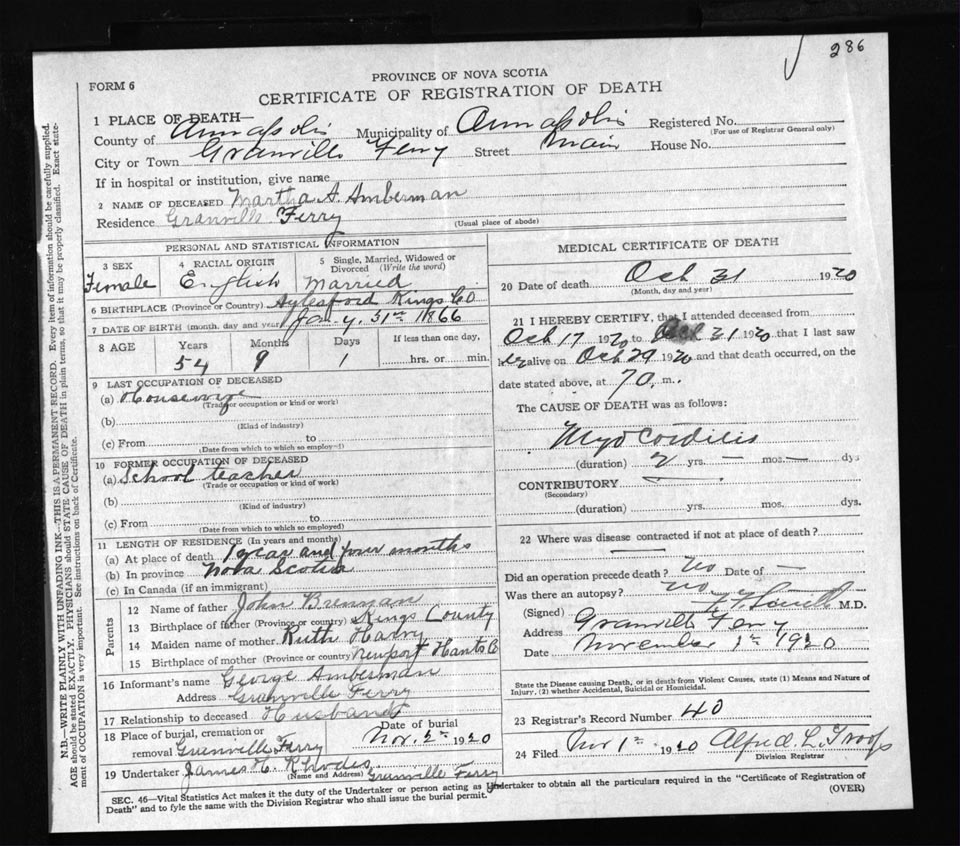 286
PROVINCE OF NOVA SCOTIA
FORM 6
CERTIFICATE OF REGISTRATION OF DEATH
1 PLACE OF DEATH—
County of Annapolis Municipality of Annapolis Registered No.
(For use of Registrar General only)
City or Town Granville Ferry Street Main House No.
If in hospital or institution, give name
2 NAME OF DECEASED Martha A. Amberman
Residence Granville Ferry
(Usual place of abode)
PERSONAL AND STATISTICAL INFORMATION
3 SEX 4 RACIAL ORIGIN 5 Single, Married, Widowed or Divorced (Write the word)
Female English Married
6 BIRTHPLACE (Province or Country) Aylesford Kings Co
7 DATE OF BIRTH (month, day and year) Jan'y. 31st 1866
8 AGE Years Months Days If less than one day,
54 9 1 hrs. or min.
9 LAST OCCUPATION OF DECEASED
(a) Housewife
(Trade or occupation or kind of work)
(b)
(Kind of industry)
(c) From to
(Date from which to which so employed)
10 FORMER OCCUPATION OF DECEASED
(a) School teacher
(Trade or occupation or kind of work)
(b)
(Kind of industry)
(c) From to
(Date from which to which so employed)
11 LENGTH OF RESIDENCE (In years and months)
(a) At place of death 1 year and four months
(b) In province Nova Scotia
(c) In Canada (if an immigrant)
Parents
12 Name of father John Brennan
13 Birthplace of father (Province or country) Kings County
14 Maiden name of mother Ruth Harry
15 Birthplace of mother (Province or country) Newport Hants Co
16 Informant's name George Amberman
Address Granville Ferry
17 Relationship to deceased Husband
18 Place of burial, cremation or removal Granville Ferry Date of burial Nov. 2nd 1920
19 Undertaker James H. Rhodes Granville Ferry
(Name and Address)
MEDICAL CERTIFICATE OF DEATH
20 Date of death Oct 31 1920
(Month, day and year)
21 I HEREBY CERTIFY, that I attended deceased from
Oct 17 1920 to Oct 31 1920 that I last saw
her alive on Oct 29 1920 and that death occurred, on the
date stated above, at m.
The CAUSE OF DEATH was as follows:
Myocarditis
(duration) 2 yrs. — mos. — dys
CONTRIBUTORY
(Secondary)
(duration) yrs. mos. dys.
22 Where was disease contracted if not at place of death?
—
Did an operation precede death? no Date of —
Was there an autopsy? no
(Signed) M.D.
Address Granville Ferry
Date November 1st 1920
State the Disease causing Death, or in death from Violent Causes, state (1) Means and Nature of
Injury, (2) whether Accidental, Suicidal or Homicidal.
23 Registrar's Record Number 40
24 Filed Nov 1st 1920 Alfred L. Troop
Division Registrar
SEC. 46—Vital Statistics Act makes it the duty of the Undertaker or person acting as Undertaker to obtain all the particulars required in the "Certificate of Registration of
Death" and to fyle the same with the Division Registrar who shall issue the burial permit.
(OVER)
N.B.—WRITE PLAINLY WITH UNFADING INK—THIS IS A PERMANENT RECORD. Every item of information should be carefully supplied.
AGE should be stated EXACTLY. PHYSICIANS should STATE CAUSE OF DEATH in plain terms, so that it may be properly classified. Exact state-
ment of OCCUPATION is very important. See instructions on back of Certificate.